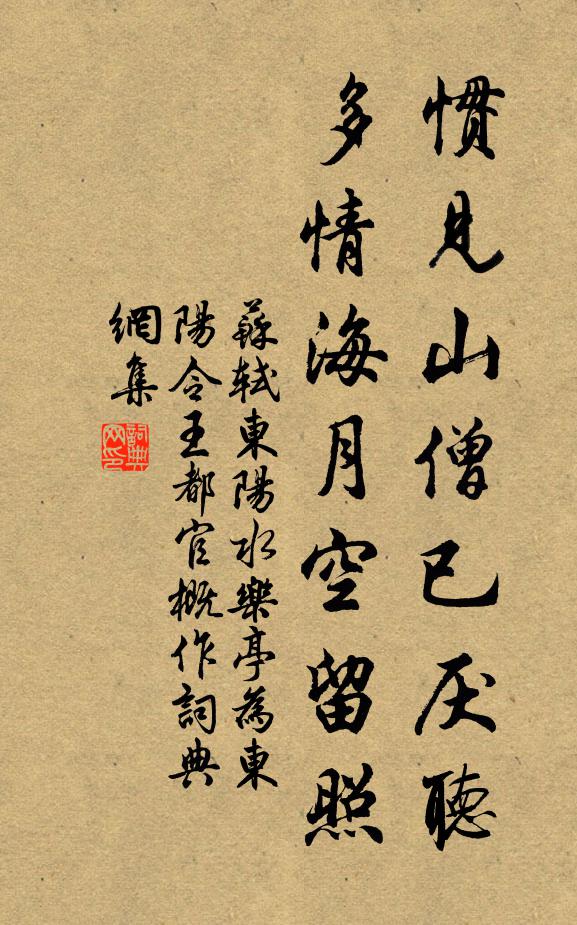 慣見山僧已厌聽
多情海月空留照
蘇軾東陽水樂亭為東
陽令王都官概作詞典
網集
詞典
网印